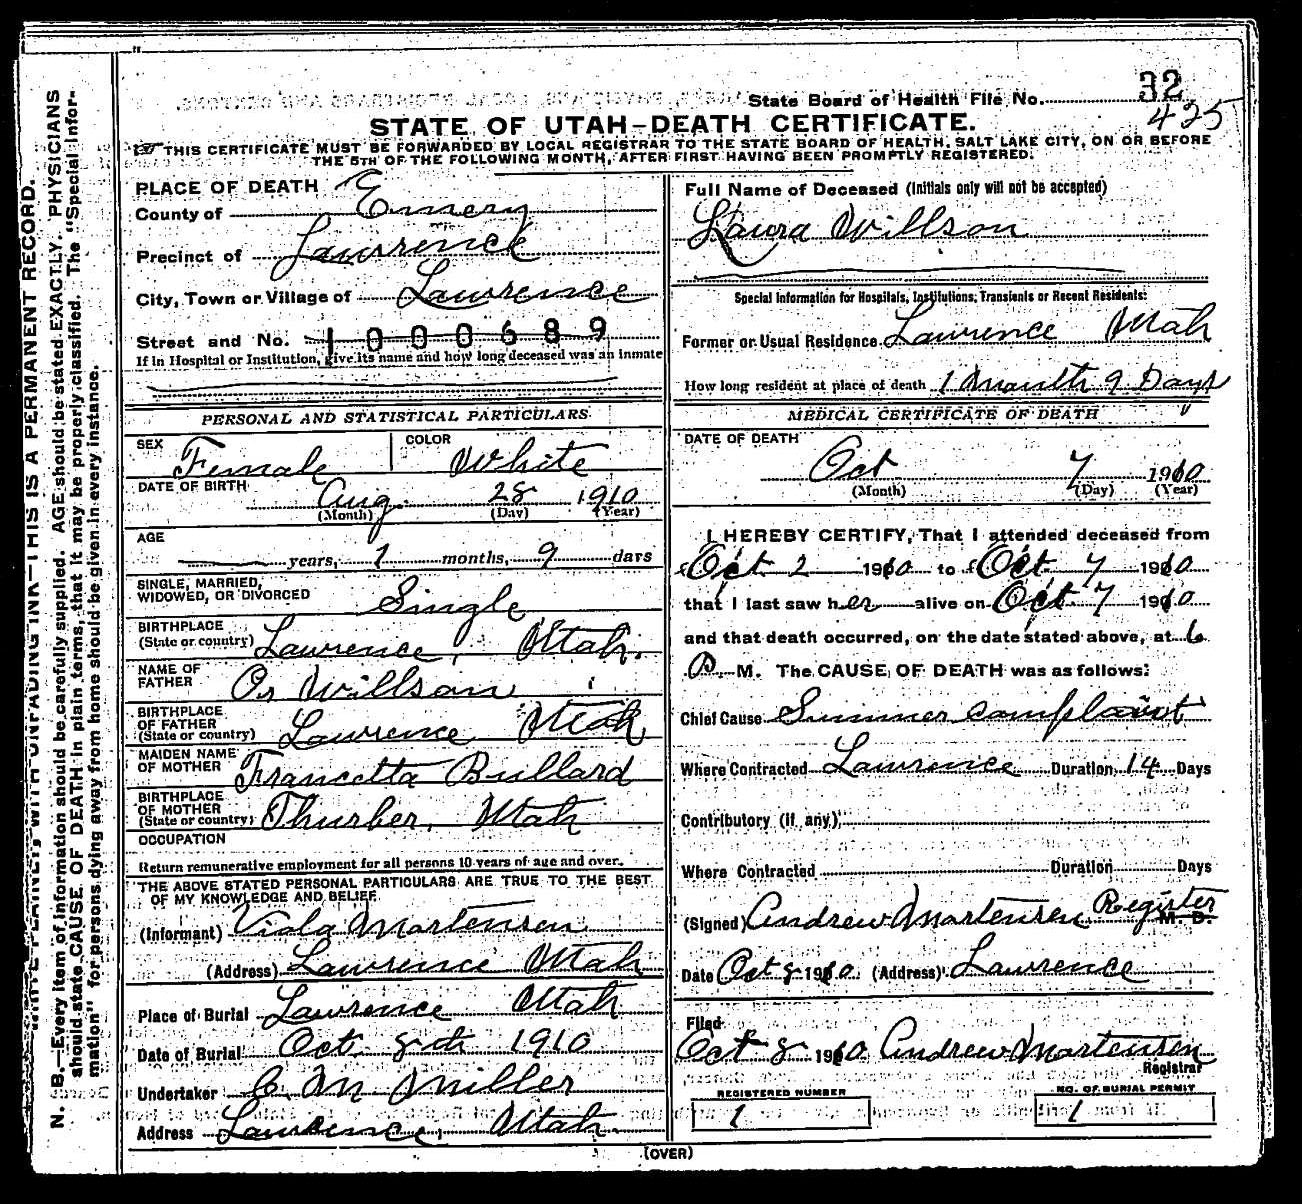 State Board of Health File No. 32
425
STATE OF UTAH–DEATH CERTIFICATE.
THIS CERTIFICATE MUST BE FORWARDED BY LOCAL REGISTRAR TO THE STATE BOARD OF HEALTH, SALT LAKE CITY, ON OR BEFORE
THE 5TH OF THE FOLLOWING MONTH, AFTER FIRST HAVING BEEN PROMPTLY REGISTERED.
PLACE OF DEATH
County of Emery
Precinct of Lawrence
City, Town or Village of Lawrence
Street and No. 1000689
If in Hospital or Institution, give its name and how long deceased was an inmate
PERSONAL AND STATISTICAL PARTICULARS
SEX Female COLOR White
DATE OF BIRTH Aug. 28 1910
(Month) (Day) (Year)
AGE
years, 1 months, 9 days
SINGLE, MARRIED,
WIDOWED, OR DIVORCED Single
BIRTHPLACE
(State or country) Lawrence, Utah.
NAME OF
FATHER Or Willson
BIRTHPLACE
OF FATHER
(State or country) Lawrence Utah
MAIDEN NAME
OF MOTHER Francetta Bullard
BIRTHPLACE
OF MOTHER
(State or country) Thurber, Utah
OCCUPATION
Return remunerative employment for all persons 10 years of age and over.
THE ABOVE STATED PERSONAL PARTICULARS ARE TRUE TO THE BEST
OF MY KNOWLEDGE AND BELIEF
(Informant) Viola Martensen
(Address) Lawrence Utah
Place of Burial Lawrence Utah
Date of Burial Oct 8th 1910
Undertaker C. M. Miller
Address Lawrence, Utah.
Full Name of Deceased (Initials only will not be accepted)
Laura Willson
Special Information for Hospitals, Institutions, Transients or Recent Residents:
Former or Usual Residence Lawrence Utah
How long resident at place of death 1 Month 9 Days
MEDICAL CERTIFICATE OF DEATH
DATE OF DEATH
Oct 7 1910
(Month) (Day) (Year)
I HEREBY CERTIFY, That I attended deceased from
Oct 2 1910 to Oct 7 1910
that I last saw her alive on Oct. 7 1910
and that death occurred, on the date stated above, at 6
P. M. The CAUSE OF DEATH was as follows:
Chief Cause Summer complaint
Where Contracted Lawrence Duration 14 Days
Contributory (if any)
Where Contracted Duration Days
(Signed) Andrew Martensen Register M. D.
Date Oct 8 1910 (Address) Lawrence
Filed
Oct 8 1910 Andrew Martensen
Registrar
REGISTERED NUMBER
1
NO. OF BURIAL PERMIT
1
(OVER)
THIS IS A PERMANENT RECORD.
N. B.—Every item of information should be carefully supplied. AGE should be stated EXACTLY. PHYSICIANS
should state CAUSE OF DEATH in plain terms, that it may be properly classified. The "Special Infor-
mation" for persons dying away from home should be given in every instance.